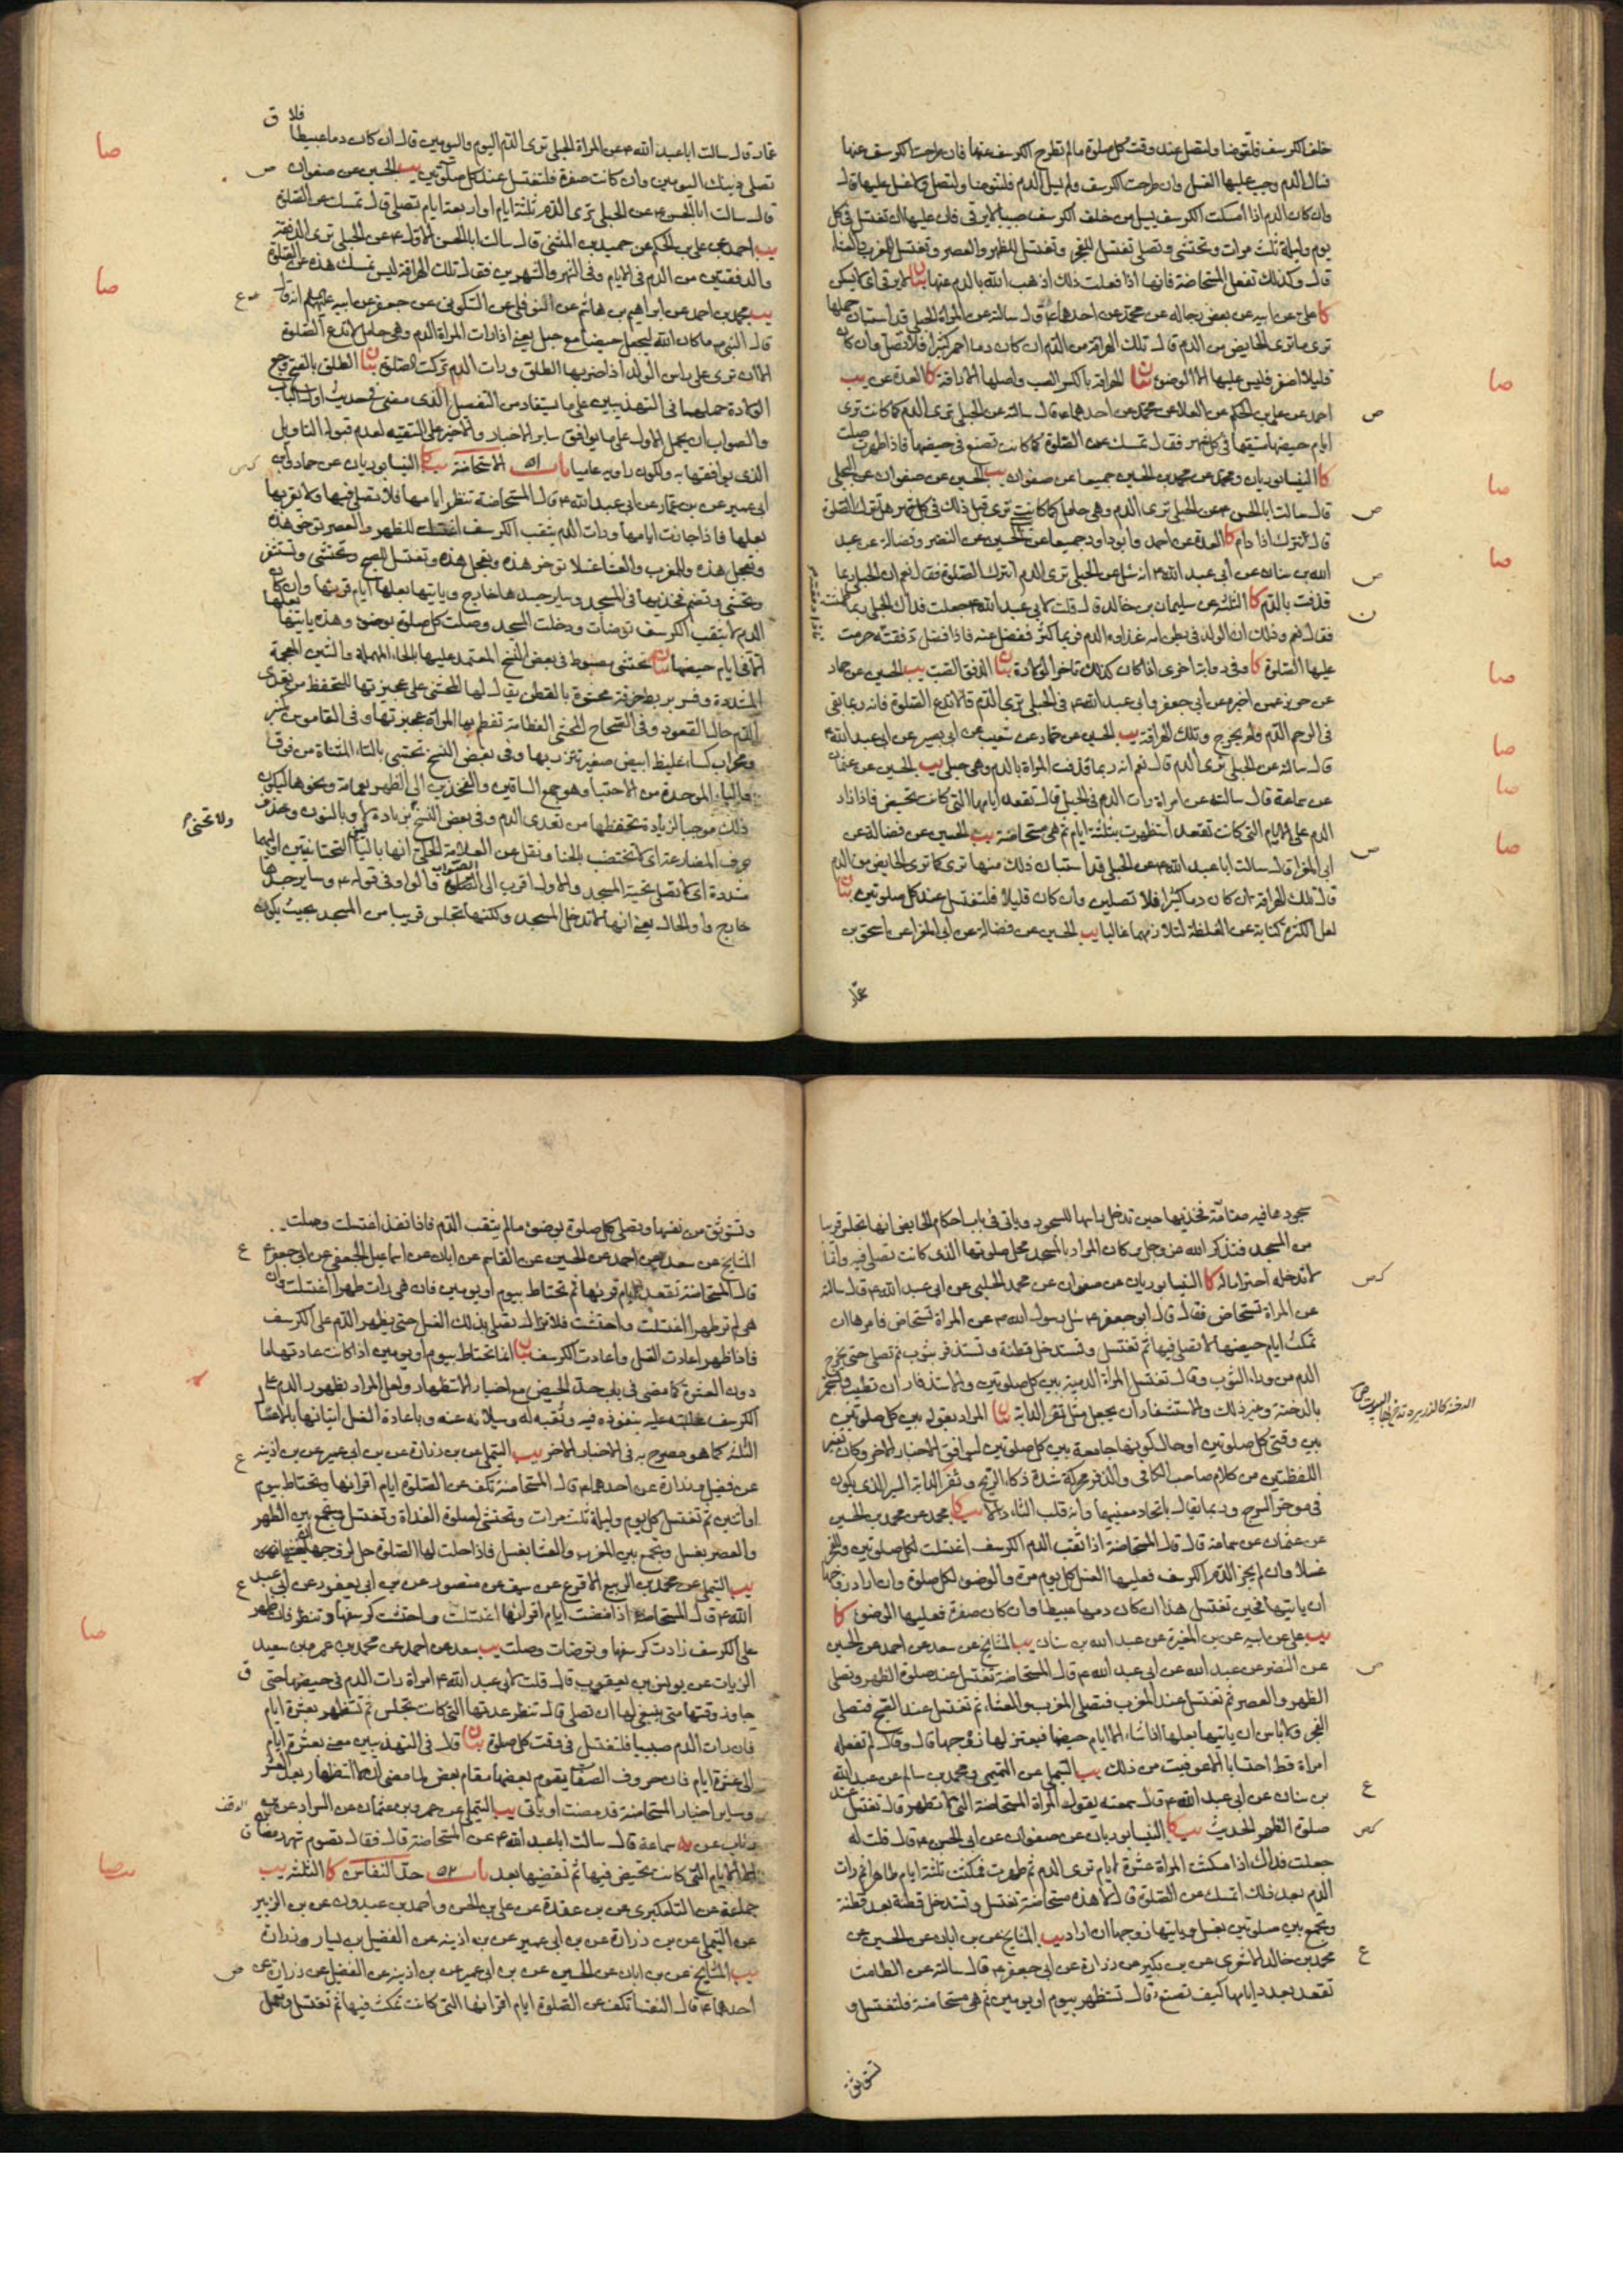 خلف الكرسف فلتتوضأ ولتصل عند وقت كل صلوة ما لم تطرح الكرسف عنها فان طرحت الكرسف عنها
فسال الدم وجب عليها الغسل وان طرحت الكرسف ولم يسل الدم فلتتوضأ ولتصل ولا غسل عليها قال
وان كان الدم اذا امسكت الكرسف يسيل من خلف الكرسف صبيبا لا يرقى فان عليها ان تغتسل في كل
يوم وليلة ثلث مرات وتحتشي وتصلي تغتسل للفجر وتغتسل للظهر والعصر وتغتسل للمغرب والعشاء
قال وكذلك تفعل المستحاضة فانها اذا فعلت ذلك اذهب الله بالدم عنها بيان لا يرقى اي لا يسكن
كا علي عن ابيه عن بعض رجاله عن محمد عن احدهما ع قال سالته عن المراة الحبلى قد استبان حملها
ترى ما ترى الحايض من الدم قال تلك الهراقة من الدم ان كان دما احمر كثيرا فلا تصل وان كان
قليلا اصفر فليس عليها الا الوضوء بيان الهراقة بالكسر الصب واصلها الاراقة كا العدة عن يب
احمد عن علي بن الحكم عن العلا عن محمد عن احدهما ع قال سالته عن الحبلى ترى الدم كما كانت ترى
ايام حيضها مستقيما في كل شهر فقال تمسك عن الصلوة كما كانت تصنع في حيضها فاذا طهرت صلت
كا النيسابوريان ومحمد عن محمد بن الحسين جميعا عن صفوان يب الحسين عن صفوان عن البجلي
قال سالت ابا الحسن ع عن الحبلى ترى الدم وهي حامل كما كانت ترى قبل ذلك في كل شهر هل تترك الصلوة
قال تترك اذا دام كا العدة عن احمد وابو داود جميعا عن الحسين عن النضر وفضالة عن عبد
الله بن سنان عن أبي عبد الله ع انه سئل عن الحبلى ترى الدم اتترك الصلوة فقال نعم ان الحبلى ربما
قذفت بالدم كا الثلثة عن سليمان بن خالد قال قلت لابي عبد الله ع جعلت فداك الحبلى ربما طمثت
فقال نعم وذلك ان الولد في بطن امه غذاوه الدم فربما كثر ففضل عنه فاذا فضل دفقته حرمت
عليها الصلوة كا وفي رواية اخرى اذا كان كذلك تاخر الولادة بيان الدفق الصب يب الحسين عن حماد
عن حريز عمن اخبره عن ابي جعفر وابي عبد الله ع في الحبلى ترى الدم قالا تدع الصلوة فانه ربما بقي
في الرحم الدم ولم يخرج وتلك الهراقة يب الحسين عن حماد عن شعيب عن ابي بصير عن ابي عبد الله ع
قال سالته عن الحبلى ترى الدم قال نعم انه ربما قذفت المراة بالدم وهي حبلى يب الحسين عن عثمان
عن سماعة قال سالته عن امراة رات الدم في الحبل قال تقعد ايامها التي كانت تحيض فاذا زاد
الدم على الايام التي كانت تقعد استظهرت بثلثة ايام ثم هي مستحاضة يب الحسين عن فضالة عن
ابي المغرا قال سالت ابا عبد الله ع عن الحبلى قد استبان ذلك منها ترى كما ترى الحايض من الدم
قال تلك الهراقة ان كان دما كثيرا فلا تصلين وان كان قليلا فلتغتسل عند كل صلوتين بيان
لعل الكثرة كناية عن الغلظة لتلازمهما غالبا يب الحسين عن فضالة عن ابي المغرا عن اسحق بن
عمار
عمار قال سالت ابا عبد الله ع عن المراة الحبلى ترى الدم اليوم واليومين قال ان كان دما عبيطا فلا
تصلي ذينك اليومين وان كانت صفرة فلتغتسل عند كل صلوتين يب الحسين عن صفوان
قال سالت ابا الحسن ع عن الحبلى ترى الدم ثلثة ايام او اربعة ايام تصلي قال تمسك عن الصلوة
يب احمد عن علي بن الحكم عن حميد بن المثنى قال سالت ابا الحسن الاول ع عن الحبلى ترى الدفقة
والدفقتين من الدم في الايام وفي الشهر والشهرين فقال تلك الهراقة ليس تمسك هذه عن الصلوة
يب محمد بن احمد عن ابراهيم بن هاشم عن النوفلي عن السكوني عن جعفر عن ابيه عليهما السلام انه قال
قال النبي ص ما كان الله ليجعل حيضا مع حبل يعني اذا رات المراة الدم وهي حامل لا تدع الصلوة
الا ان ترى على راس الولد اذا ضربها الطلق ورات الدم تركت الصلوة بيان الطلق بالفتح وجع
الولادة حملهما في التهذيبين على ما يستفاد من التفصيل الذي مضى في حديث اول الباب
والصواب ان يحمل الاول على ما يوافق ساير الاخبار والاخير على التقية لعدم قبوله التاويل
الذي يوافقها به ولكون راويه عاميا باب ٥١ الاستحاضة يب كا النيسابوريان عن حماد وابن
أبي عمير عن بن عمار عن ابي عبد الله ع قال المستحاضة تنظر ايامها فلا تصلي فيها ولا يقربها
بعلها فاذا جازت ايامها ورات الدم يثقب الكرسف اغتسلت للظهر والعصر توخر هذه
وتعجل هذه وللمغرب والعشا غسلا توخر هذه وتعجل هذه وتغتسل للصبح وتحتشي وتستثفر
وتحتشي وتضم فخذيها في المسجد وساير جسدها خارج ولا ياتيها بعلها ايام قرئها وان كان
الدم لا يثقب الكرسف توضات ودخلت المسجد وصلت كل صلوة بوضوء وهذه ياتيها بعلها
الا في ايام حيضها بيان تحتشي مضبوط في بعض النسخ المعتمد عليها بالحاء المهملة والشين المعجمة
المشددة وفسر بربط خرقة محشوة بالقطن يقال لها المحشى على عجيزتها للتحفظ من تعدي
الدم حال القعود وفي الصحاح المحشى العظامة تعظم بها المراة عجيزتها وفي القاموس كمنبر
ومحراب كساء غليظ ابيض صغير يتزر بها وفي بعض النسخ تحتبي بالتاء المثناة من فوق
والباء الموحدة من الاحتباء وهو جمع الساقين والفخذين الى الظهر بعمامة ونحوها ليكون
ذلك موجبا لزيادة تحفظها من تعدي الدم وفي بعض النسخ بزيادة لا وبالنون وحذف
حرف المضارعة اي لا تختضب بالحناء ونقل عن العلامة الحلي انها بالياء التحتانيتين اوليهما
مشددة اي لا تصلي تحية المسجد والاول اقرب الى الصواب والواو في قوله ع وساير جسدها
خارج واو الحال يعني انها لا تدخل المسجد ولكنها تجلس قريبا من المسجد بحيث يكون
ولا تحنى
سجودها فيه ضامة فخذيها حين تدخل راسها للسجود وياتي في باب احكام الحايض انها تجلس قريبا
من المسجد فتذكر الله عز وجل وكان المراد بالمسجد محل صلوتها الذي كانت تصلي فيه وانما
لا تدخله احتراما له كا النيسابوريان عن صفوان عن محمد الحلبي عن ابي عبد الله ع قال سالته
عن المراة تستحاض فقال قال ابو جعفر ع سئل رسول الله ص عن المراة تستحاض فامرها ان
تمكث ايام حيضها لا تصلي فيها ثم تغتسل وتستدخل قطنة وتستذفر بثوب ثم تصلي حتى يخرج
الدم من وراء الثوب وقال تغتسل المراة الدمية بين كل صلوتين والاستذفار ان تطيب وتستجمر
بالدخنة وغير ذلك والاستثفار ان يجعل مثل ثفر الدابة بيان المراد بقوله بين كل صلوتين
بين وقتي كل صلوتين او حال كونها جامعة بين كل صلوتين ليوافق الاخبار الاخر وكان تفسير
اللفظتين من كلام صاحب الكافي والذفر محركة شدة ذكاء الريح وثفر الدابة السير الذي يكون
في موخر السرج وربما يقال باتحاد معنييهما وانه قلب الثاء ذالا يب كا محمد عن محمد بن الحسين
عن عثمان عن سماعة قال قال المستحاضة اذا ثقب الدم الكرسف اغتسلت لكل صلوتين وللفجر
غسلا وان لم يجز الدم الكرسف فعليها الغسل كل يوم مرة والوضوء لكل صلوة وان اراد زوجها
ان ياتيها فحين تغتسل هذا ان كان دمها عبيطا وان كان صفرة فعليها الوضوء كا
يب علي عن ابيه عن بن المغيرة عن عبد الله بن سنان يب المشايخ عن سعد عن احمد عن الحسين
عن النضر عن عبد الله عن ابي عبد الله ع قال المستحاضة تغتسل عند صلوة الظهر وتصلي
الظهر والعصر ثم تغتسل عند المغرب فتصلي المغرب والعشاء ثم تغتسل عند الصبح فتصلي
الفجر ولا باس ان ياتيها بعلها اذا شاء الا ايام حيضها فيعتزلها زوجها قال وقال لم تفعله
امراة قط احتسابا الا عوفيت من ذلك يب التيملي عن التميمي ومحمد بن سالم عن عبد الله
بن سنان عن ابي عبد الله ع قال سمعته يقول المراة المستحاضة التي لا تطهر قال تغتسل عند
صلوة الظهر الحديث يب كا النيسابوريان عن صفوان عن ابي الحسن ع قال قلت له
جعلت فداك اذا مكثت المراة عشرة ايام ترى الدم ثم طهرت فمكثت ثلثة ايام طاهرا ثم رات
الدم بعد ذلك اتمسك عن الصلوة قال لا هذه مستحاضة تغتسل وتستدخل قطنة بعد قطنة
وتجمع بين صلوتين بغسل وياتيها زوجها ان اراد يب المشايخ عن بن ابان عن الحسين عن
محمد بن خالد الاشعري عن بن بكير عن زرارة عن ابي جعفر ع قال سالته عن الطامث
تقعد بعدد ايامها كيف تصنع قال تستظهر بيوم او يومين ثم هي مستحاضة فلتغتسل و
تستوثق
وتستوثق من نفسها وتصلي كل صلوة بوضوء ما لم يثقب الدم فاذا نفذ اغتسلت وصلت
المشايخ عن سعد عن احمد عن الحسين عن القاسم عن ابان عن اسماعيل الجعفي عن ابي جعفر ع
قال المستحاضة تقعد ايام قرئها ثم تحتاط بيوم او يومين فان هي رات طهرا اغتسلت وان
هي لم تر طهرا اغتسلت واحتشت فلا تزال تصلي بذلك الغسل حتى يظهر الدم على الكرسف
فاذا ظهر اعادت الغسل واعادت الكرسف بيان انما تحتاط بيوم او يومين اذا كانت عادتها ما
دون العشرة كما مضى في باب حد الحيض مع اخبار الاستظهار ولعل المراد بظهور الدم على
الكرسف غلبته عليه بنفوذه فيه وثقبه له وسيلانه عنه وباعادة الغسل اتيانها بالاغسال
الثلثة كما هو مصرح به في الاخبار الاخر يب التيملي عن بن زرارة عن بن ابي عمير عن بن اذينة
عن فضيل وزرارة عن احدهما ع قال المستحاضة تكف عن الصلوة ايام اقرائها وتحتاط بيوم
او اثنين ثم تغتسل كل يوم وليلة ثلث مرات وتحتشي لصلوة الغداة وتغتسل وتجمع بين الظهر
والعصر بغسل وتجمع بين المغرب والعشا بغسل فاذا حلت لها الصلوة حل لزوجها ان يغشاها
يب التيملي عن محمد بن الربيع الاقرع عن سيف عن منصور عن بن ابي يعفور عن ابي عبد
الله ع قال المستحاضة اذا مضت ايام اقرائها اغتسلت واحتشت كرسفها وتنظر فان ظهر
على الكرسف زادت كرسفها وتوضات وصلت يب سعد عن احمد عن محمد بن عمرو بن سعيد
الزيات عن يونس بن يعقوب قال قلت لابي عبد الله ع امراة رات الدم في حيضها حتى
جاوز وقتها متى ينبغي لها ان تصلي قال تنظر عدتها التي كانت تجلس ثم تستظهر بعشرة ايام
فان رات الدم صبيبا فلتغتسل في وقت كل صلوة بيان قال في التهذيبين معنى بعشرة ايام
الى عشرة ايام فان حروف الصفات يقوم بعضها مقام بعض لما مضى ان لا استظهار بعد العشرة
وساير اخبار المستحاضة قد مضت او ياتي يب التيملي عن عمرو بن عثمان عن السراد عن بن
رئاب عن سماعة قال سالت ابا عبد الله ع عن المستحاضة قال فقال تصوم شهر رمضان
الا الايام التي كانت تحيض فيها ثم تقضيها بعد باب ٥٢ حد النفاس كا الثلثة يب
جماعة عن التلعكبري عن بن عقدة عن علي بن الحسن واحمد بن عبدون عن بن الزبير
عن التيملي عن بن زرارة عن بن ابي عمير عن بن اذينة عن الفضيل بن يسار وزرارة
يب المشايخ عن بن ابان عن الحسين عن بن ابي عمير عن بن اذينة عن الفضيل عن زرارة عن
احدهما ع قال النفسا تكف عن الصلوة ايام اقرائها التي كانت تمكث فيها ثم تغتسل وتعمل